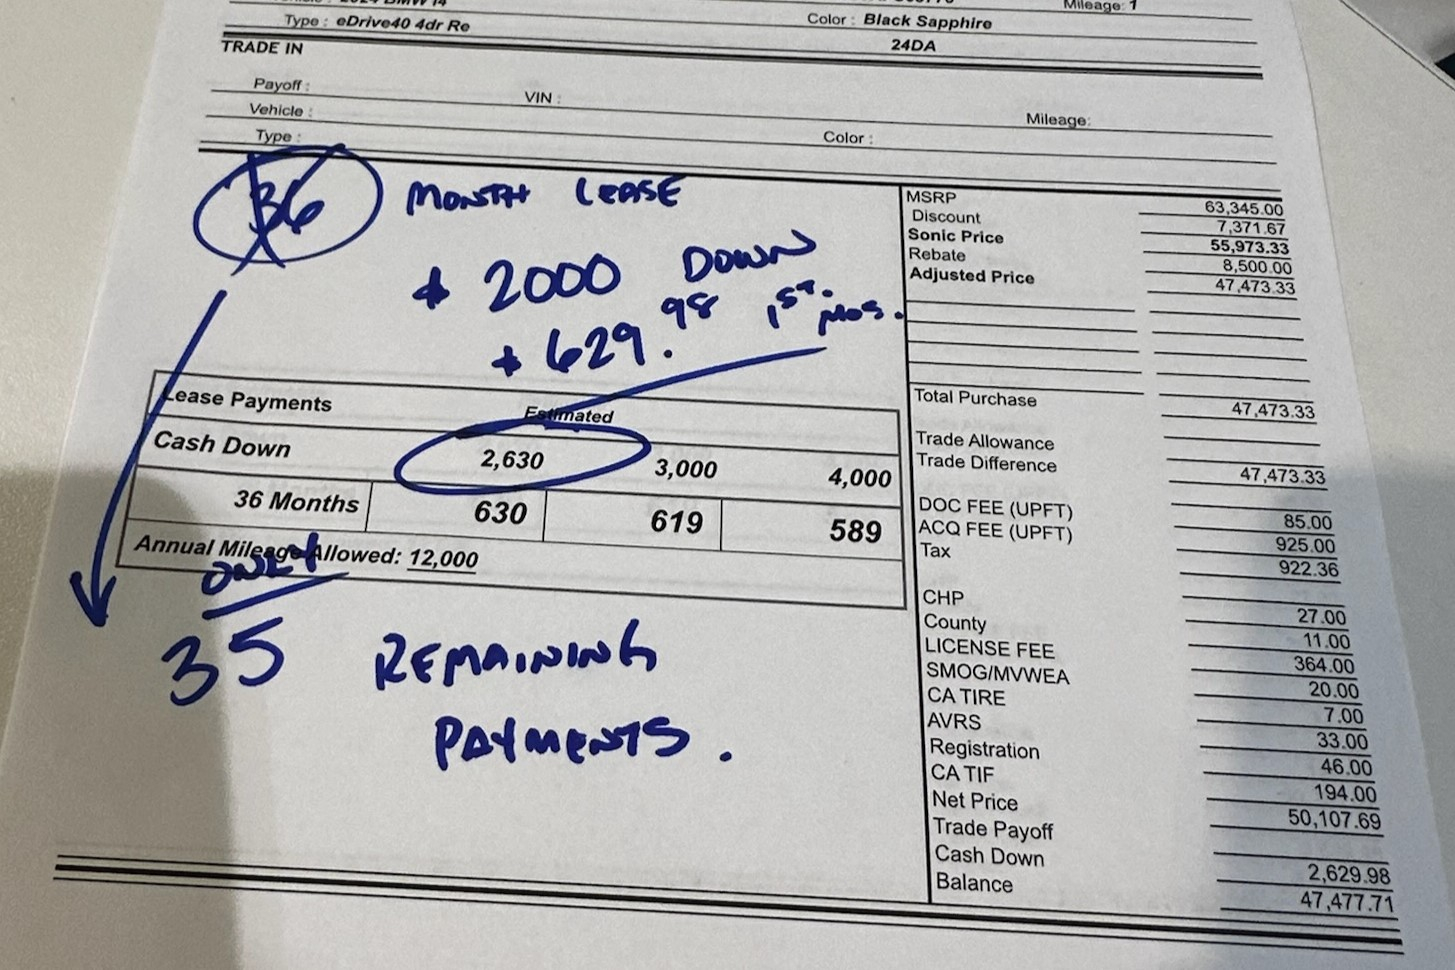 2024 BMW i4
Mileage: 1
Type : eDrive40 4dr Re
Color : Black Sapphire
24DA
TRADE IN
Payoff :
VIN :
Vehicle :
Mileage:
Type :
Color :
36 MONTH LEASE
+ 2000 DOWN
+ 629.98 1ST. MOS.
Lease Payments Estimated
Cash Down 2,630 3,000 4,000
36 Months 630 619 589
Annual Mileage Allowed: 12,000
ONLY
35 REMAINING
PAYMENTS.
MSRP 63,345.00
Discount 7,371.67
Sonic Price 55,973.33
Rebate 8,500.00
Adjusted Price 47,473.33
Total Purchase 47,473.33
Trade Allowance
Trade Difference 47,473.33
DOC FEE (UPFT) 85.00
ACQ FEE (UPFT) 925.00
Tax 922.36
CHP 27.00
County 11.00
LICENSE FEE 364.00
SMOG/MVWEA 20.00
CA TIRE 7.00
AVRS 33.00
Registration 46.00
CA TIF 194.00
Net Price 50,107.69
Trade Payoff
Cash Down 2,629.98
Balance 47,477.71